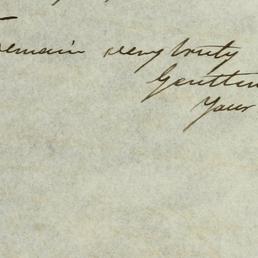 remain very truly
Gentlem
Your